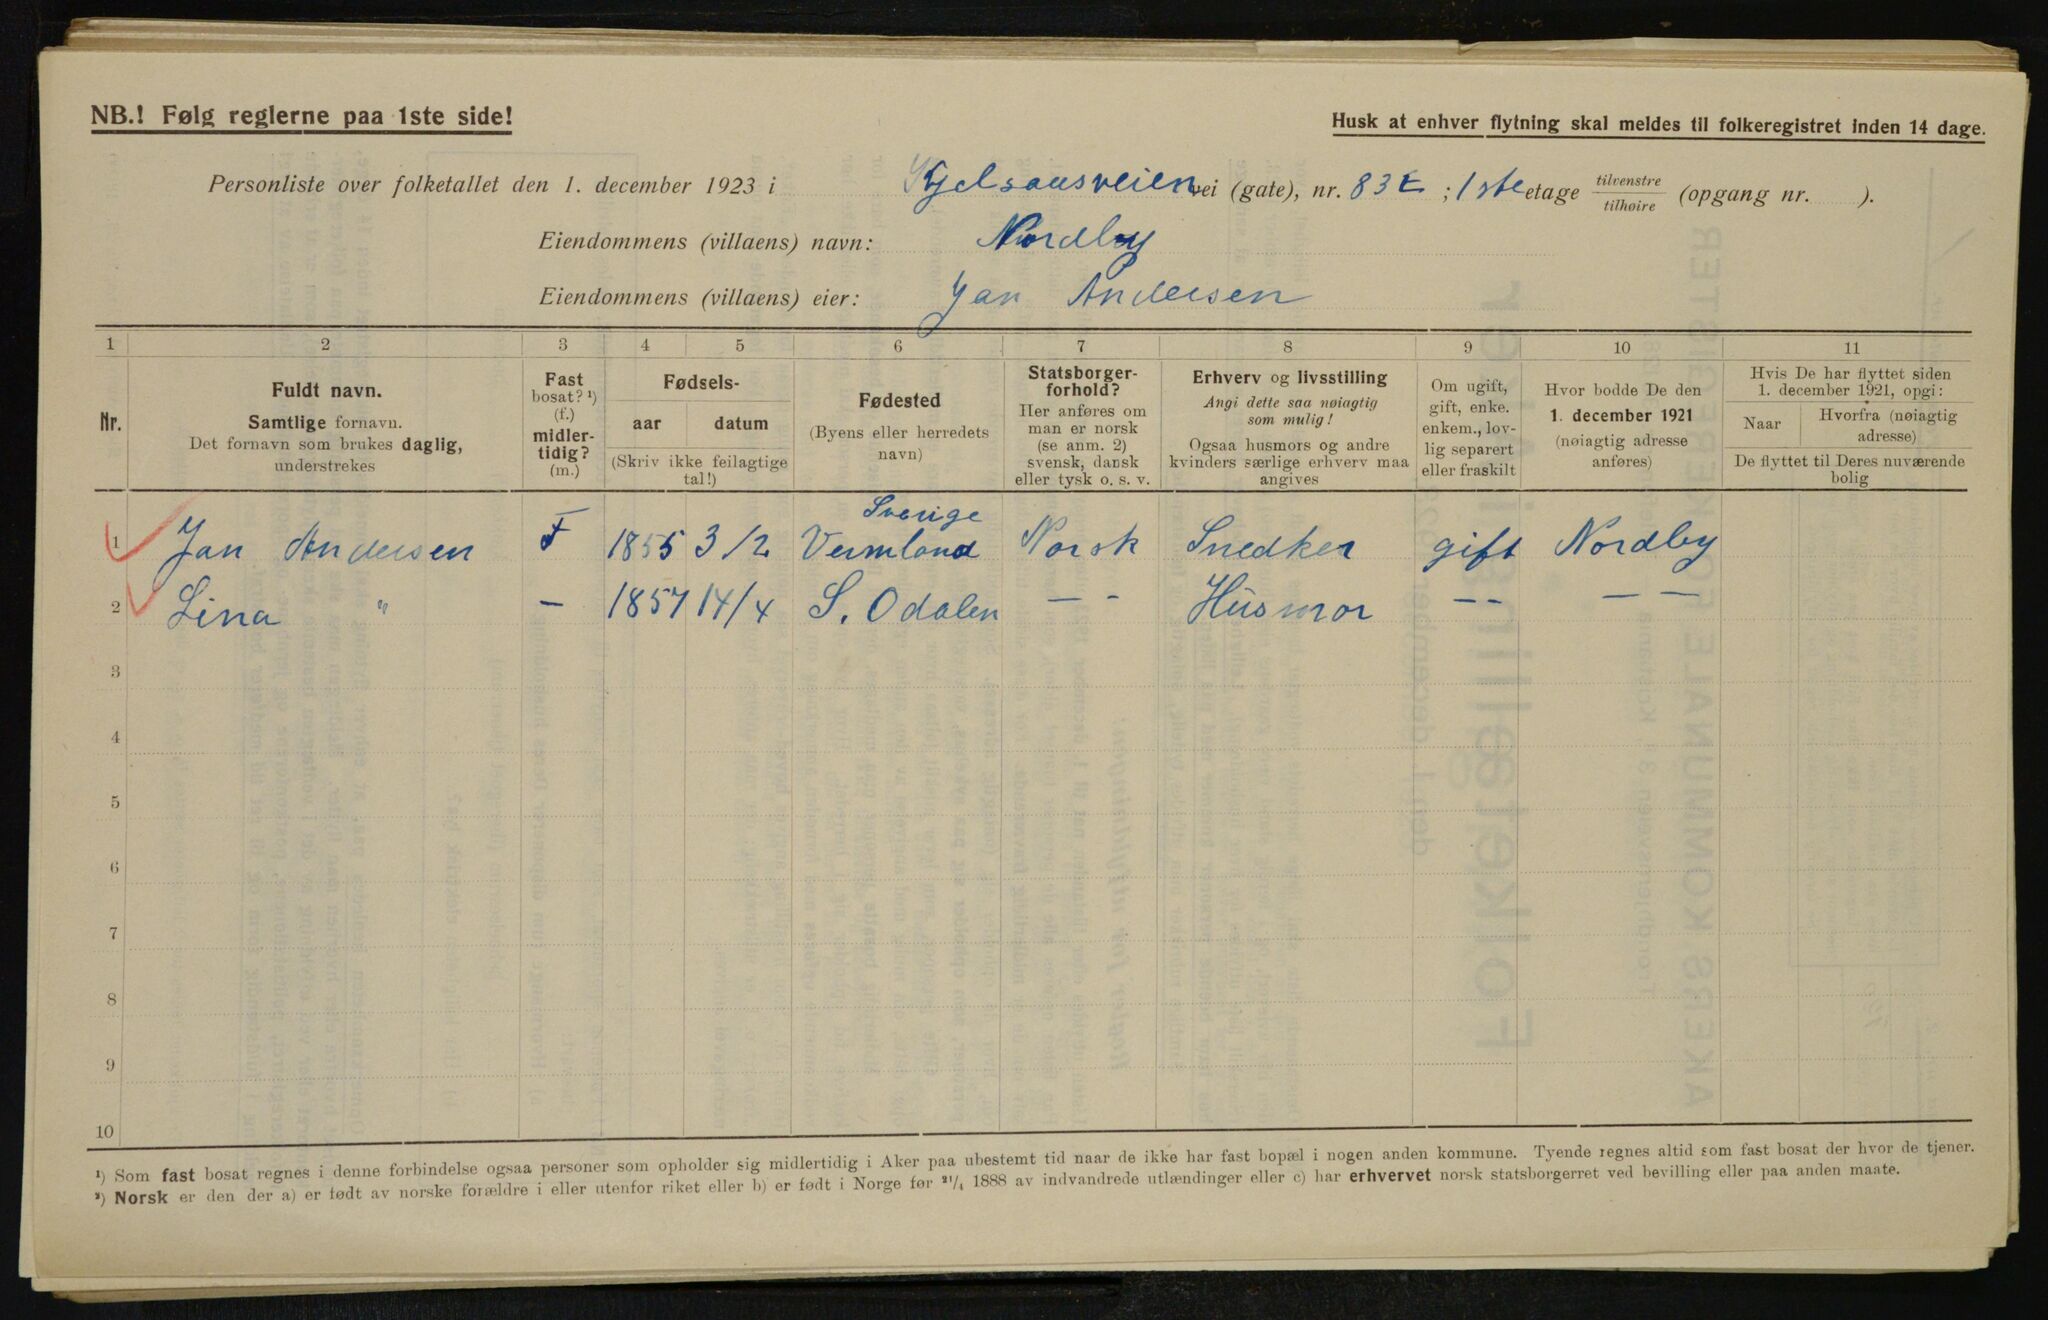 NB.! Følg reglerne paa 1ste side!
Husk at enhver flytning skal meldes til folkeregistret inden 14 dage.
Personliste over folketallet den 1. december 1923 i Kjelsaasveien vei (gate), nr. 83 E ; 1ste etage tilvenstre tilhøire (opgang nr. ).
Eiendommens (villaens) navn: Nordby
Eiendommens (villaens) eier: Jan Andersen
1 2 3 4 5 6 7 8 9 10 11
Nr.
Fuldt navn.
Samtlige fornavn.
Det fornavn som brukes daglig,
understrekes
Fast
bosat? ¹)
(f.)
midler-
tidig?
(m.)
Fødsels-
aar datum
(Skriv ikke feilagtige
tal!)
Fødested
(Byens eller herredets
navn)
Statsborger-
forhold?
Her anføres om
man er norsk
(se anm. 2)
svensk, dansk
eller tysk o. s. v.
Erhverv og livsstilling
Angi dette saa nøiagtig
som mulig!
Ogsaa husmors og andre
kvinders særlige erhverv maa
angives
Om ugift,
gift, enke.
enkem., lov-
lig separert
eller fraskilt
Hvor bodde De den
1. december 1921
(nøiagtig adresse
anføres)
Hvis De har flyttet siden
1. december 1921, opgi:
Naar
Hvorfra (nøiagtig
adresse)
De flyttet til Deres nuværende
bolig
Sverige
1 Jan Andersen F 1855 3/2 Vermland Norsk Snedker gift Nordby
2 Lina " — 1857 14/4 S. Odalen — - Husmor — - — —
3
4
5
6
7
8
9
10
¹) Som fast bosat regnes i denne forbindelse ogsaa personer som opholder sig midlertidig i Aker paa ubestemt tid naar de ikke har fast bopæl i nogen anden kommune. Tyende regnes altid som fast bosat der hvor de tjener.
²) Norsk er den der a) er født av norske forældre i eller utenfor riket eller b) er født i Norge før 21/4 1888 av indvandrede utlændinger eller c) har erhvervet norsk statsborgerret ved bevilling eller paa anden maate.